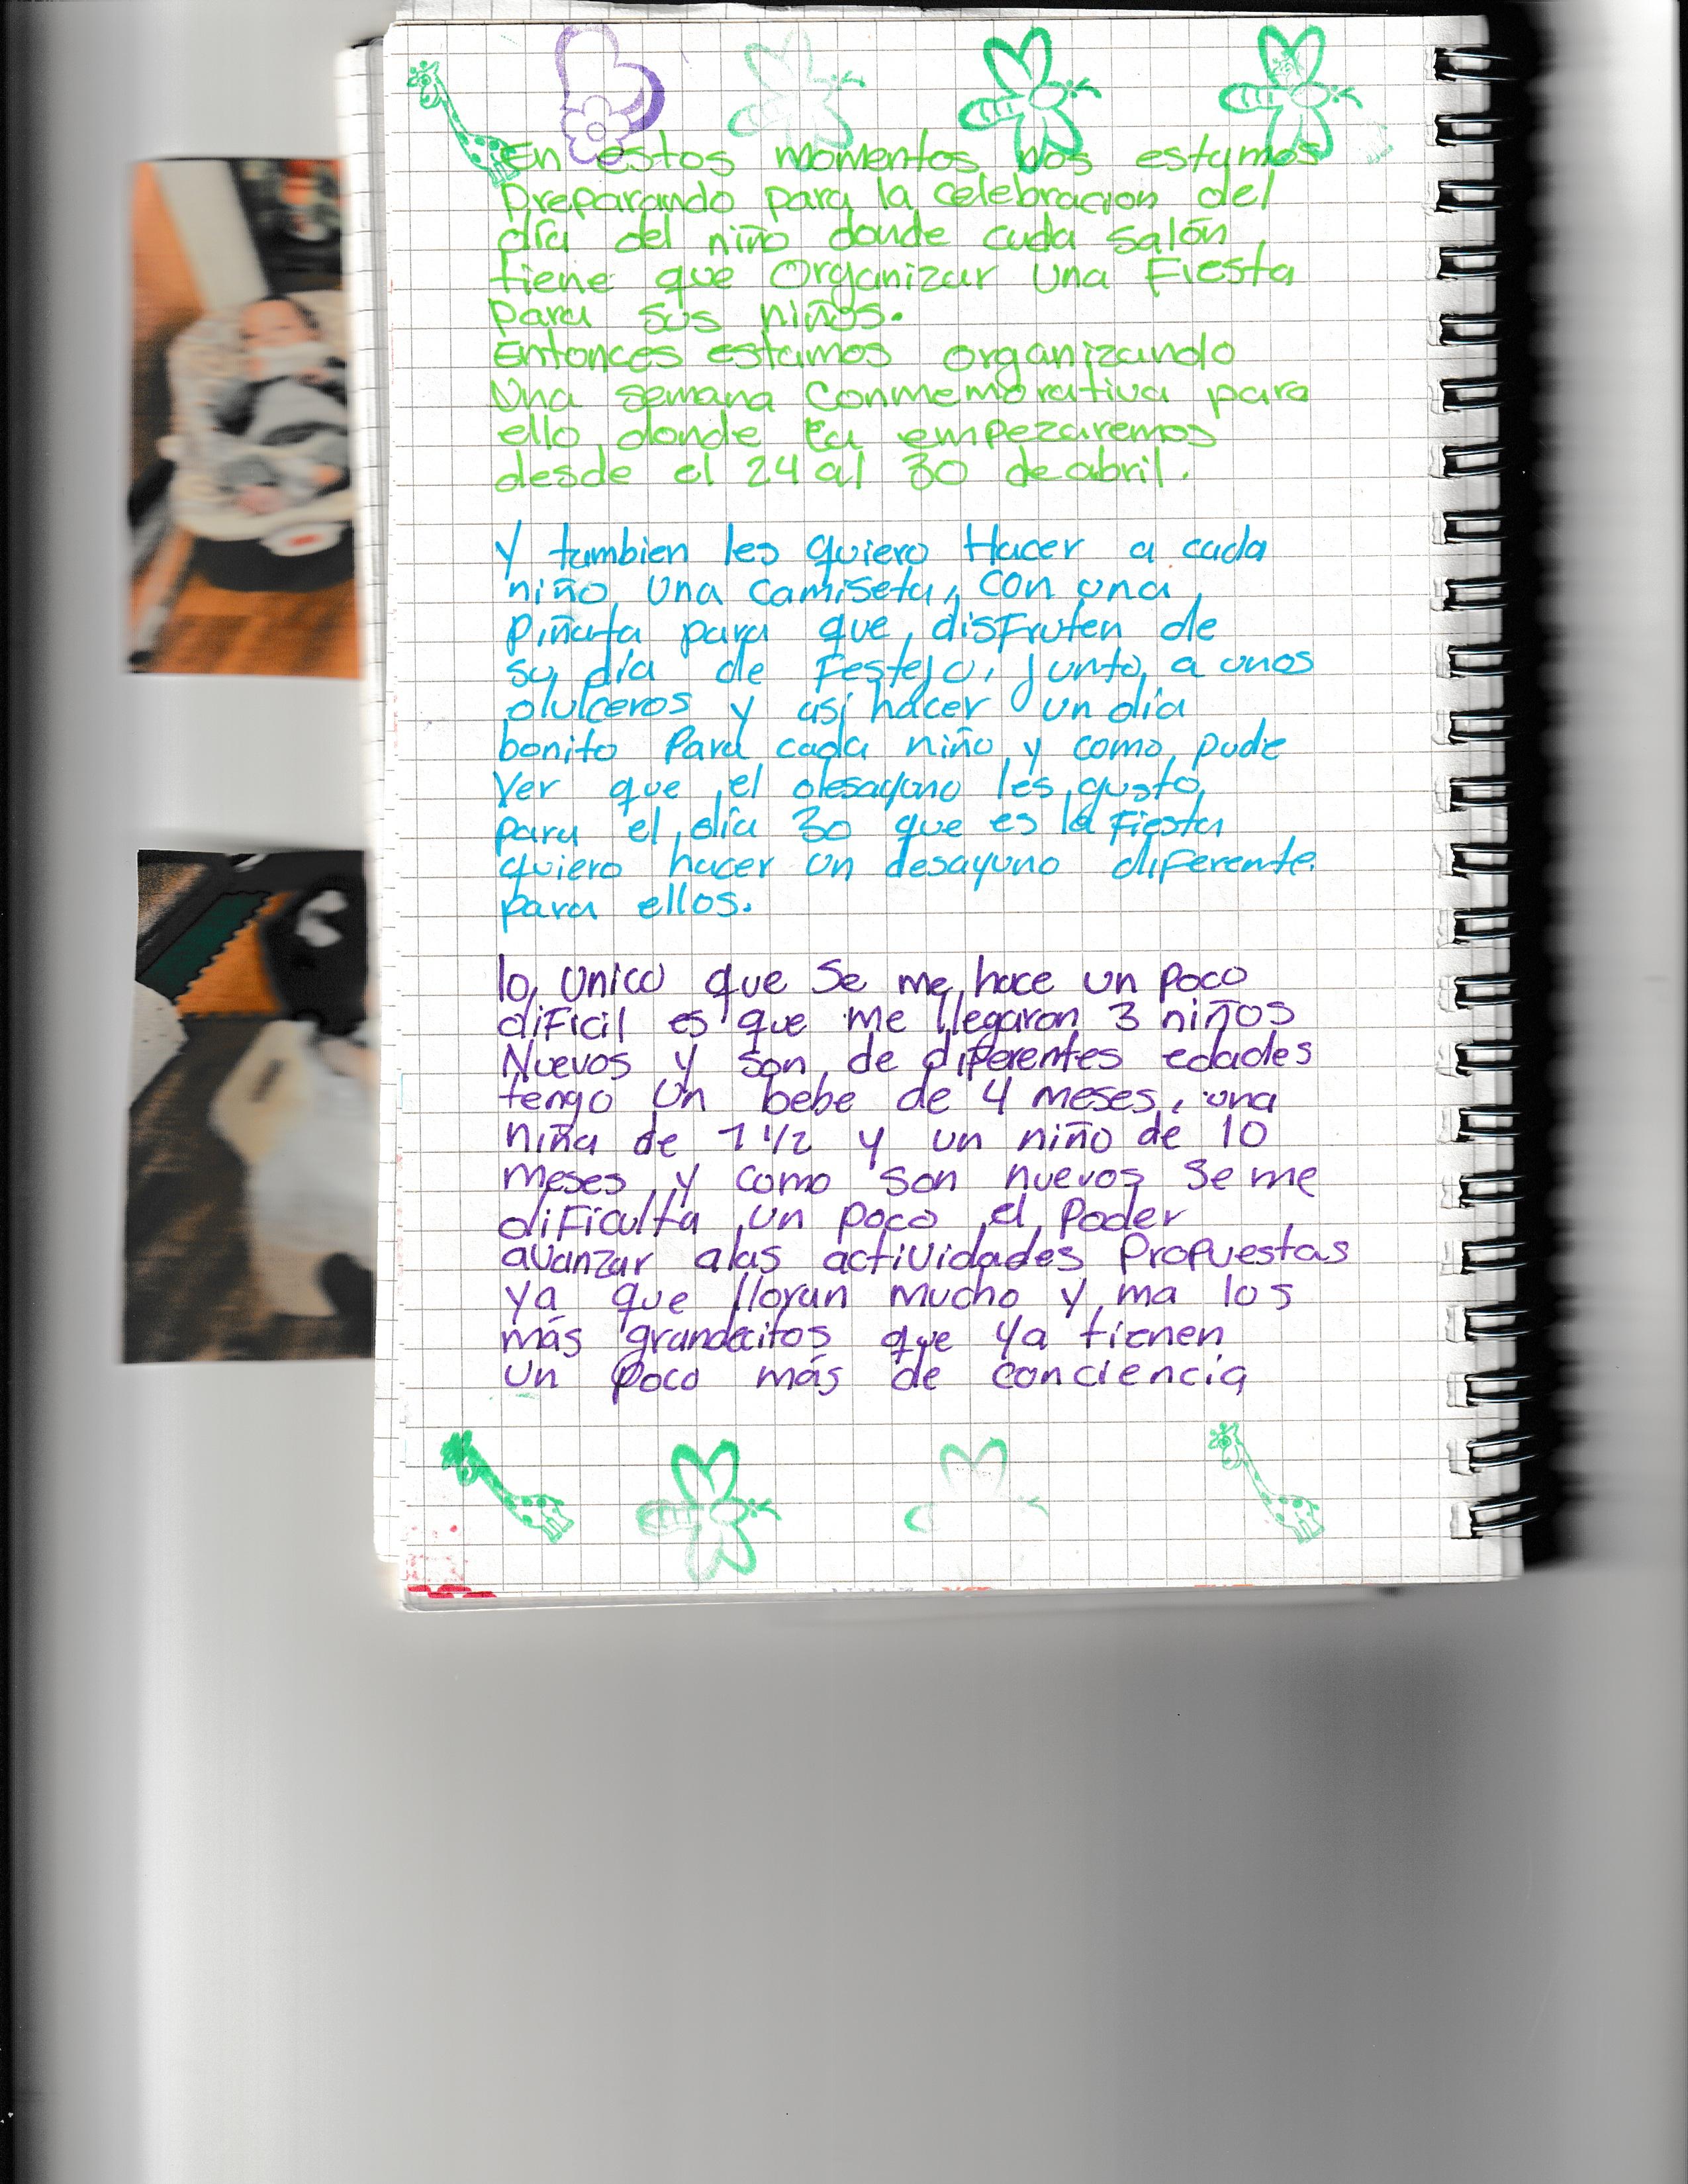 En estos momentos nos estamos
Preparando para la celebracion del
día del niño donde cada salón
tiene que Organizar una Fiesta
para sus niños.
Entonces estamos organizando
Una semana Conmemorativa para
ello donde la empezaremos
desde el 24 al 30 de abril.
Y tambien les quiero Hacer a cada
niño una camiseta, con una
Piñata para que disFruten de
su día de Festejo, junto a unos
dulceros y así hacer un día
bonito Para cada niño y como pude
Ver que el desayuno les gusto,
para el día 30 que es la Fiesta
quiero hacer un desayuno diFerente
para ellos.
lo unico que Se me hace un poco
diFicil es que me llegaron 3 niños
Nuevos y son de diferentes edades
tengo Un bebe de 4 meses, una
niña de 1 1/2 y un niño de 10
meses y como son nuevos Se me
diFiculta un poco el Poder
avanzar alas actividades Propuestas
ya que lloran mucho y ma los
más grandecitos que ya tienen
un poco más de conciencia